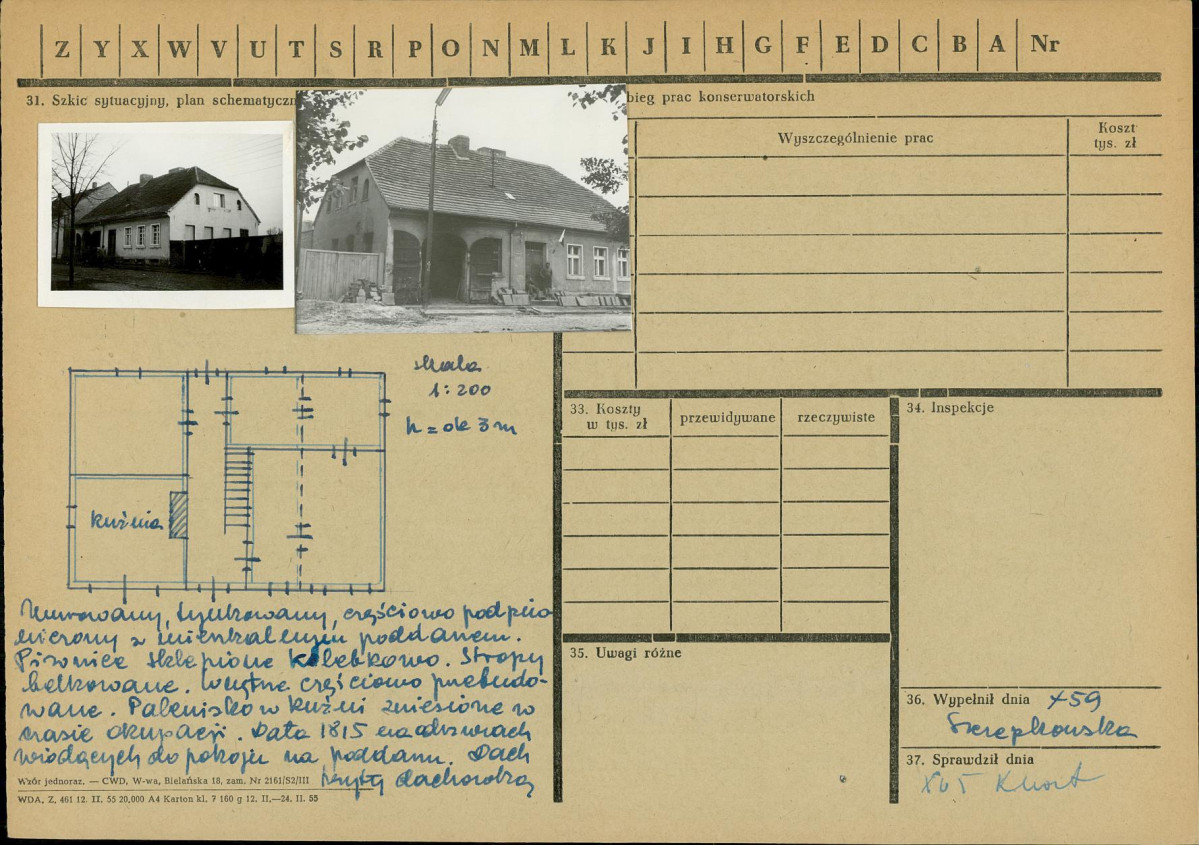 Z Y X W V U T S R P O N M L K J I H G F E D C B A Nr
31. Szkic sytuacyjny, plan schematyczn
bieg prac konserwatorskich
Wyszczególnienie prac
Koszt
tys. zł
skala
1:200
h = ok 3 m
kuźnia
Murowany, tynkowany, częściowo podpiw
niczony z mieszkalnym poddaszem.
Piwnice sklepione kolebkowo. Stropy
belkowane. Wnętrze częściowo przebudo-
wane. Palenisko w kuźni zniesione w
czasie okupacji. Data 1815 na drzwiach
wiodących do pokoju na poddaszu. Dach
kryty dachówką
Wzór jednoraz. — CWD, W-wa, Bielańska 18, zam. Nr 2161/52/III
WDA, Z. 461 12. II. 55 20,000 A4 Karton kl. 7 160 g 12. II.—24. II. 55
33. Koszty
w tys. zł
przewidywane
rzeczywiste
34. Inspekcje
35. Uwagi różne
36. Wypełnił dnia X 59
37. Sprawdził dnia